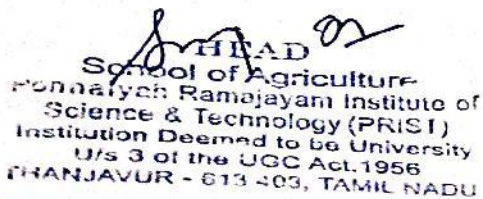 HEAD
School of Agriculture
Ponnaiyah Ramajayam Institute of
Science & Technology (PRIST)
Institution Deemed to be University
U/s 3 of the UGC Act.1956
THANJAVUR - 613 403, TAMIL NADU